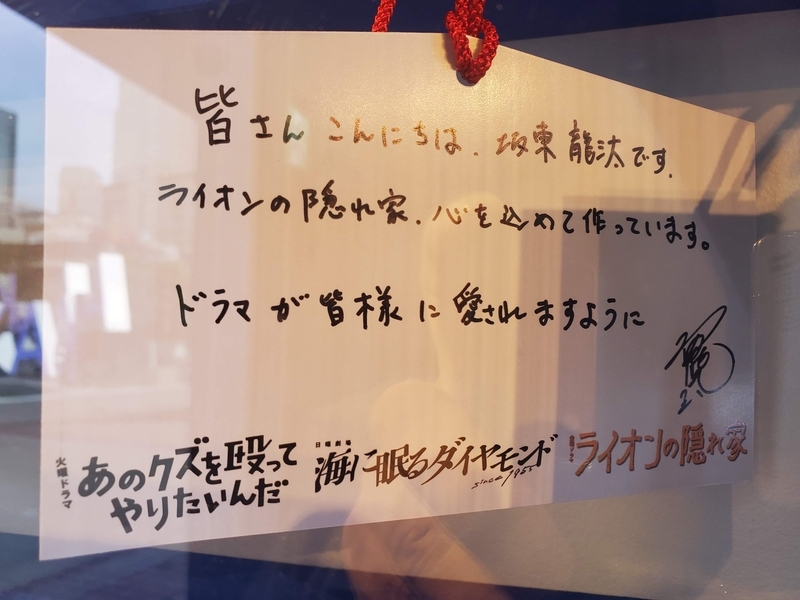 皆さん こんにちは、坂東 龍汰です。
ライオンの隠れ家、心を込めて作っています。
ドラマが皆様に愛されますように
火曜ドラマ
あのクズを殴って
やりたいんだ
日曜劇場
海に眠るダイヤモンド
since 1955
金曜ドラマ
ライオンの隠れ家